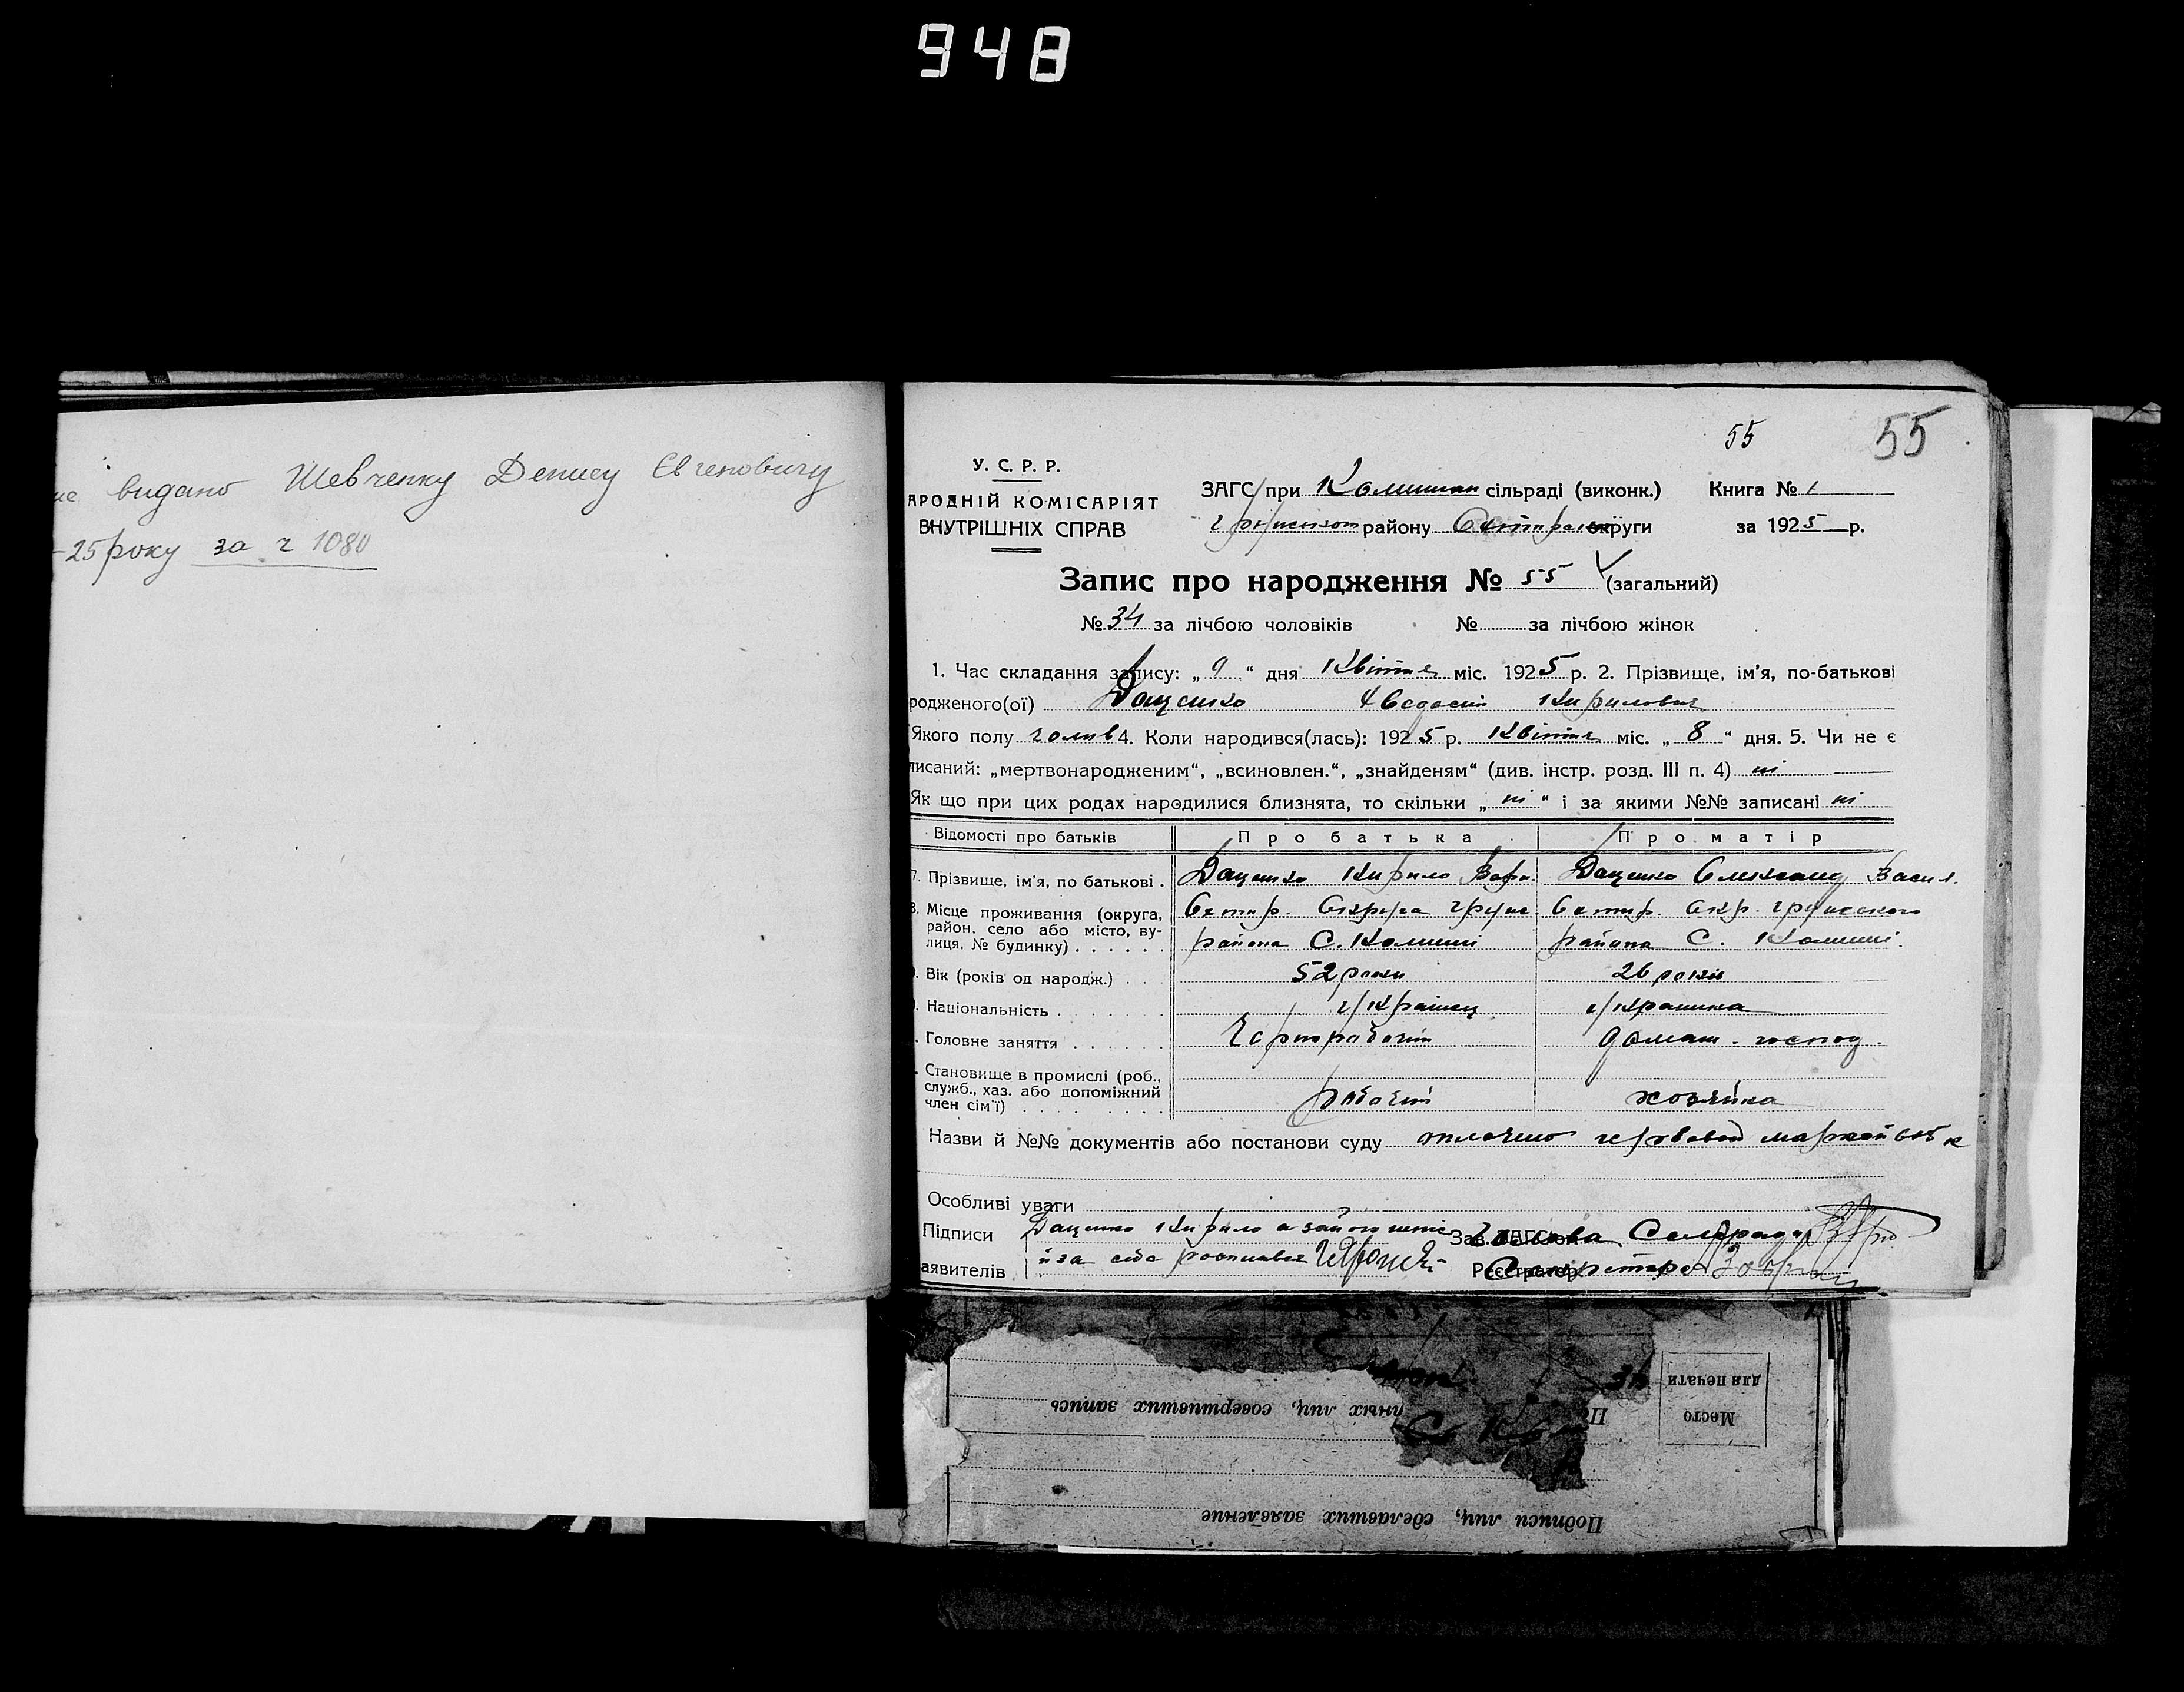 948
видано Шевченку Денису Євгеновичу
-25 року за ч 1080
55 55
У. С. Р. Р.
АРОДНІЙ КОМІСАРІЯТ
ВНУТРІШНІХ СПРАВ
ЗАГС при сільраді (виконк.) Книга № 1
району округи за 1925 р.
Запис про народження № 55 (загальний)
№ 34 за лічбою чоловіків № за лічбою жінок
1. Час складання запису: „ 9 “ дня Квітня міс. 1925 р. 2. Прізвище, ім'я, по-батькові
родженого(ої) Даценко Кирилович
Якого полу 4. Коли народився(лась): 1925 р. Квітня міс. „ 8 “ дня. 5. Чи не є
писаний: „мертвонародженим“, „всиновлен.“, „знайденям“ (див. інстр. розд. III п. 4) ні
Як що при цих родах народилися близнята, то скільки „ ні “ і за якими №№ записані ні
Відомості про батьків Про батька Про матір
7. Прізвище, ім'я, по батькові . Даценко Кирило Даценко Василь.
8. Місце проживання (округа, район, село або місто, вулиця, № будинку) . . . . . .
Охтир. Округа Охтир. Окр.
района С. района С.
. Вік (років од народж.) . . . 52 роки 26 роки
. Національність . . . . . . . Украінец Украинка
. Головне заняття . . . . . . Чорнорабочій домаш. господ.
. Становище в промислі (роб.,
служб., хаз. або допоміжний
член сім'ї) . . . . . . . . . рабочій хозяйка
Назви й №№ документів або постанови суду гербовой маркой
Особливі уваги
Підписи Даценко Кирило а за Зав. ЗАГС'ом Голова Сельради
аявителів й за себе росписався Реєстратор Секретарь
Место
для печати
лных лиц, совершивших запись
Подписи лиц, сделавших заявление